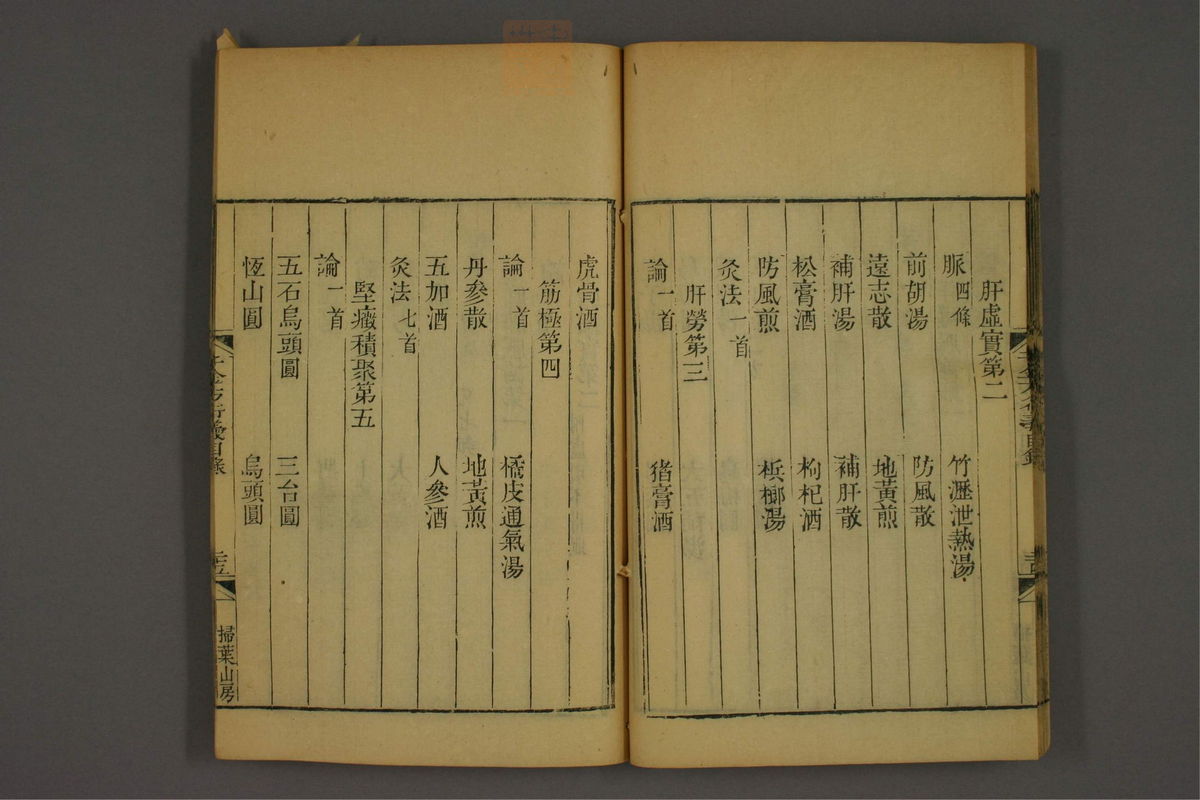 肝虛實第二
脈四條 竹瀝泄熱湯
前胡湯 防風散
遠志散 地黃煎
補肝湯 補肝散
松膏酒 枸杞酒
防風煎 檳榔湯
灸法一首
肝勞第三
論一首 猪膏酒
虎骨酒
筋極第四
論一首 橘皮通氣湯
丹參散 地黃煎
五加酒 人參酒
灸法七首
堅癥積聚第五
論一首
五石烏頭圓 三台圓
恆山圓 烏頭圓
千金方衍義目錄
掃葉山房